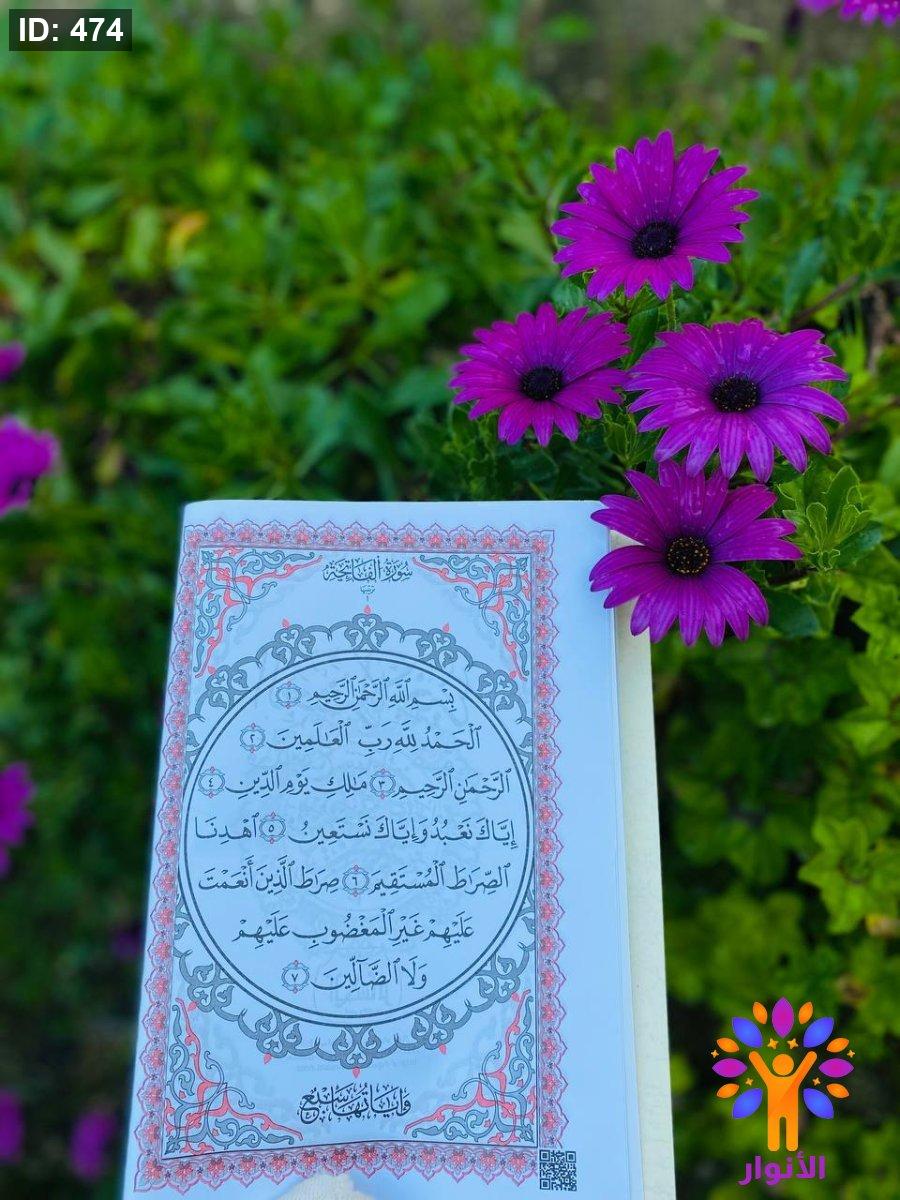 ID: 474
سُورَةُ الْفَاتِحَةِ
بِسْمِ ٱللَّهِ ٱلرَّحْمَٰنِ ٱلرَّحِيمِ ١
ٱلْحَمْدُ لِلَّهِ رَبِّ ٱلْعَٰلَمِينَ ٢
ٱلرَّحْمَٰنِ ٱلرَّحِيمِ ٣ مَٰلِكِ يَوْمِ ٱلدِّينِ ٤
إِيَّاكَ نَعْبُدُ وَإِيَّاكَ نَسْتَعِينُ ٥ ٱهْدِنَا
ٱلصِّرَٰطَ ٱلْمُسْتَقِيمَ ٦ صِرَٰطَ ٱلَّذِينَ أَنْعَمْتَ
عَلَيْهِمْ غَيْرِ ٱلْمَغْضُوبِ عَلَيْهِمْ
وَلَا ٱلضَّآلِّينَ ٧
وَآيَاتُهَا سَبْعٌ
الأنوار